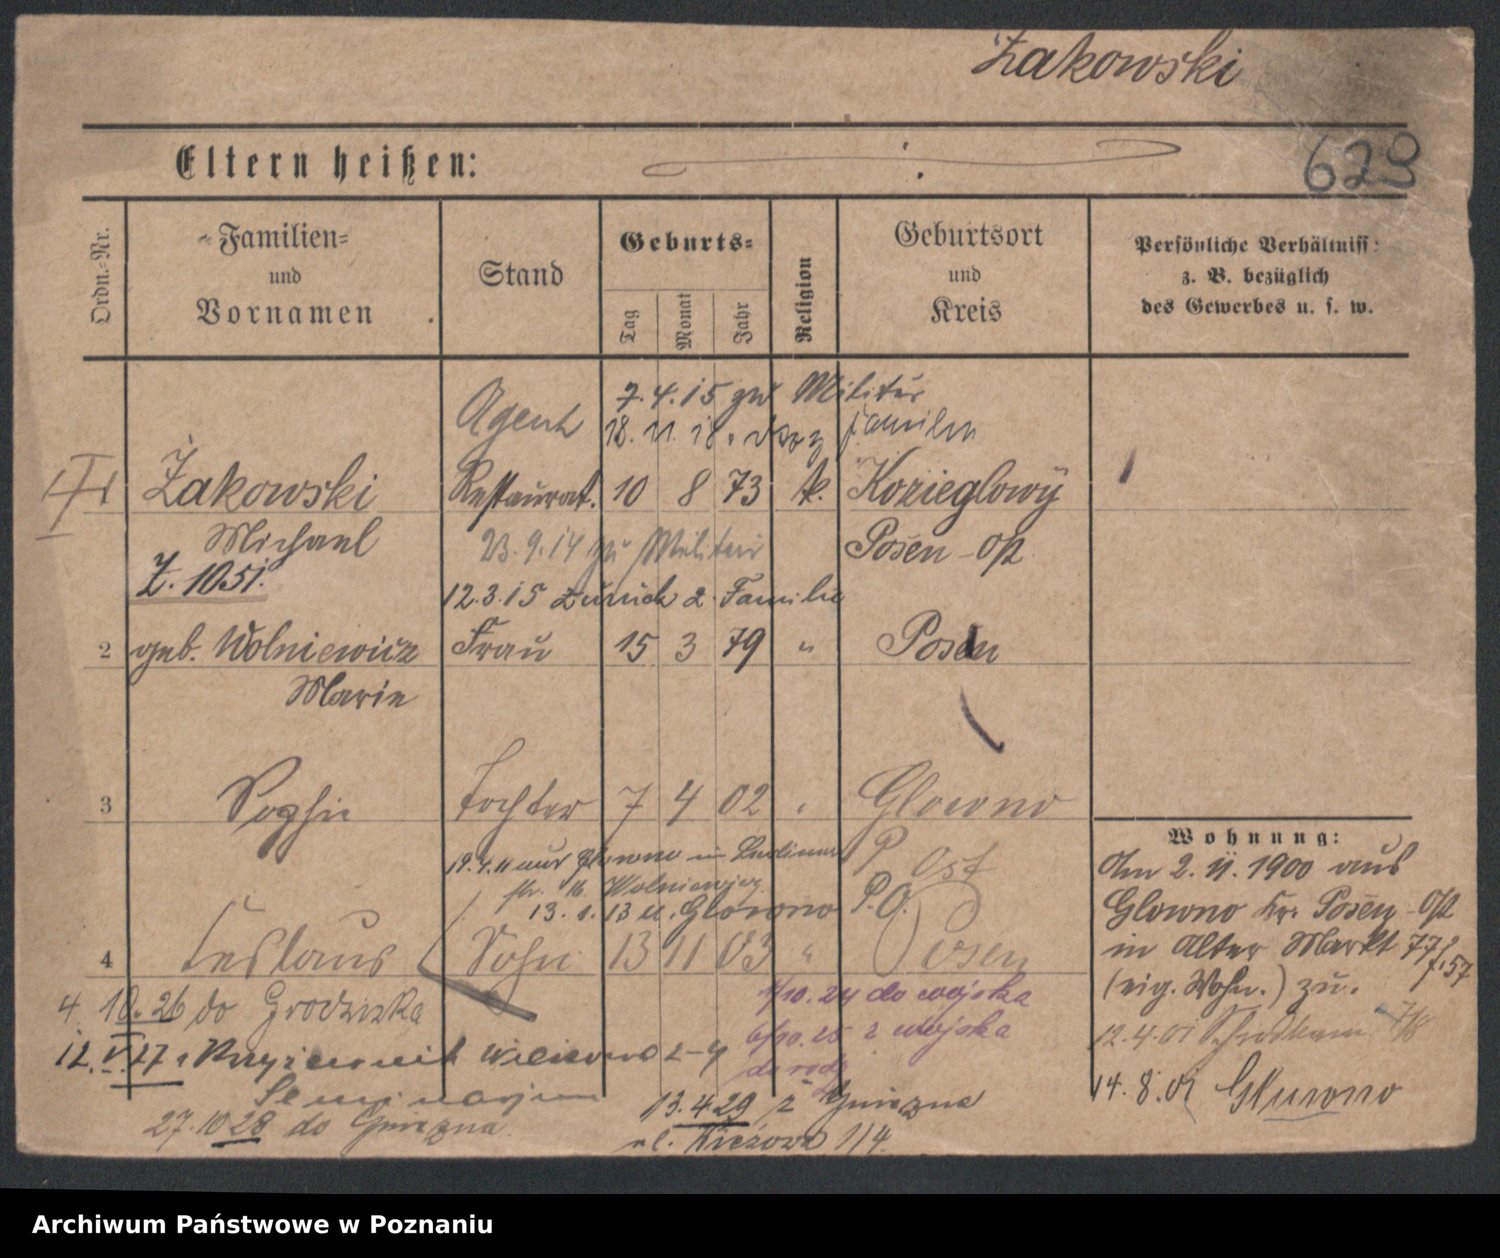 Żakowski
Eltern heißen:
623
Ordn.-Nr.
Familien-
und
Vornamen
Stand
Geburts-
Tag
Monat
Jahr
Religion
Geburtsort
und
Kreis
Persönliche Verhältniss
z. B. bezüglich
des Gewerbes u. s. w.
7.4.15 zum Militär
Agent
18.11.18. Familien
Żakowski Restaurat. 10 8 73 k. Kozieglowy
Michael 23.9.14 zu Militär Posen-Ost
Z. 1051.
12.3.15 zurück z. Familie
2 geb. Wolniewicz Frau 15 3 79 " Posen
Marie
3 Sophie Tochter 7 4 02 " Glowno
P. Ost
19.4.11 aus Glowno in
Wolniewicz
13.1.13 n. Glowno P.O.
4 Ceslaus Sohn 13 11 03 " Posen
Wohnung:
Am 2. 11. 1900 aus
Glowno Kr. Posen-Ost
in Alter Markt 77
(eig. Wohn.) zu.
12.4.01
14.8.01 Glowno
4. 10. 26 do Grodziska
1/10. 24 do wojska
6/10. 25 z wojska
do rodz
12. V. 27
Seminarjum
27.10 28 do Gniezna
13.4 29 z Gniezna
ul. 114.
Archiwum Państwowe w Poznaniu